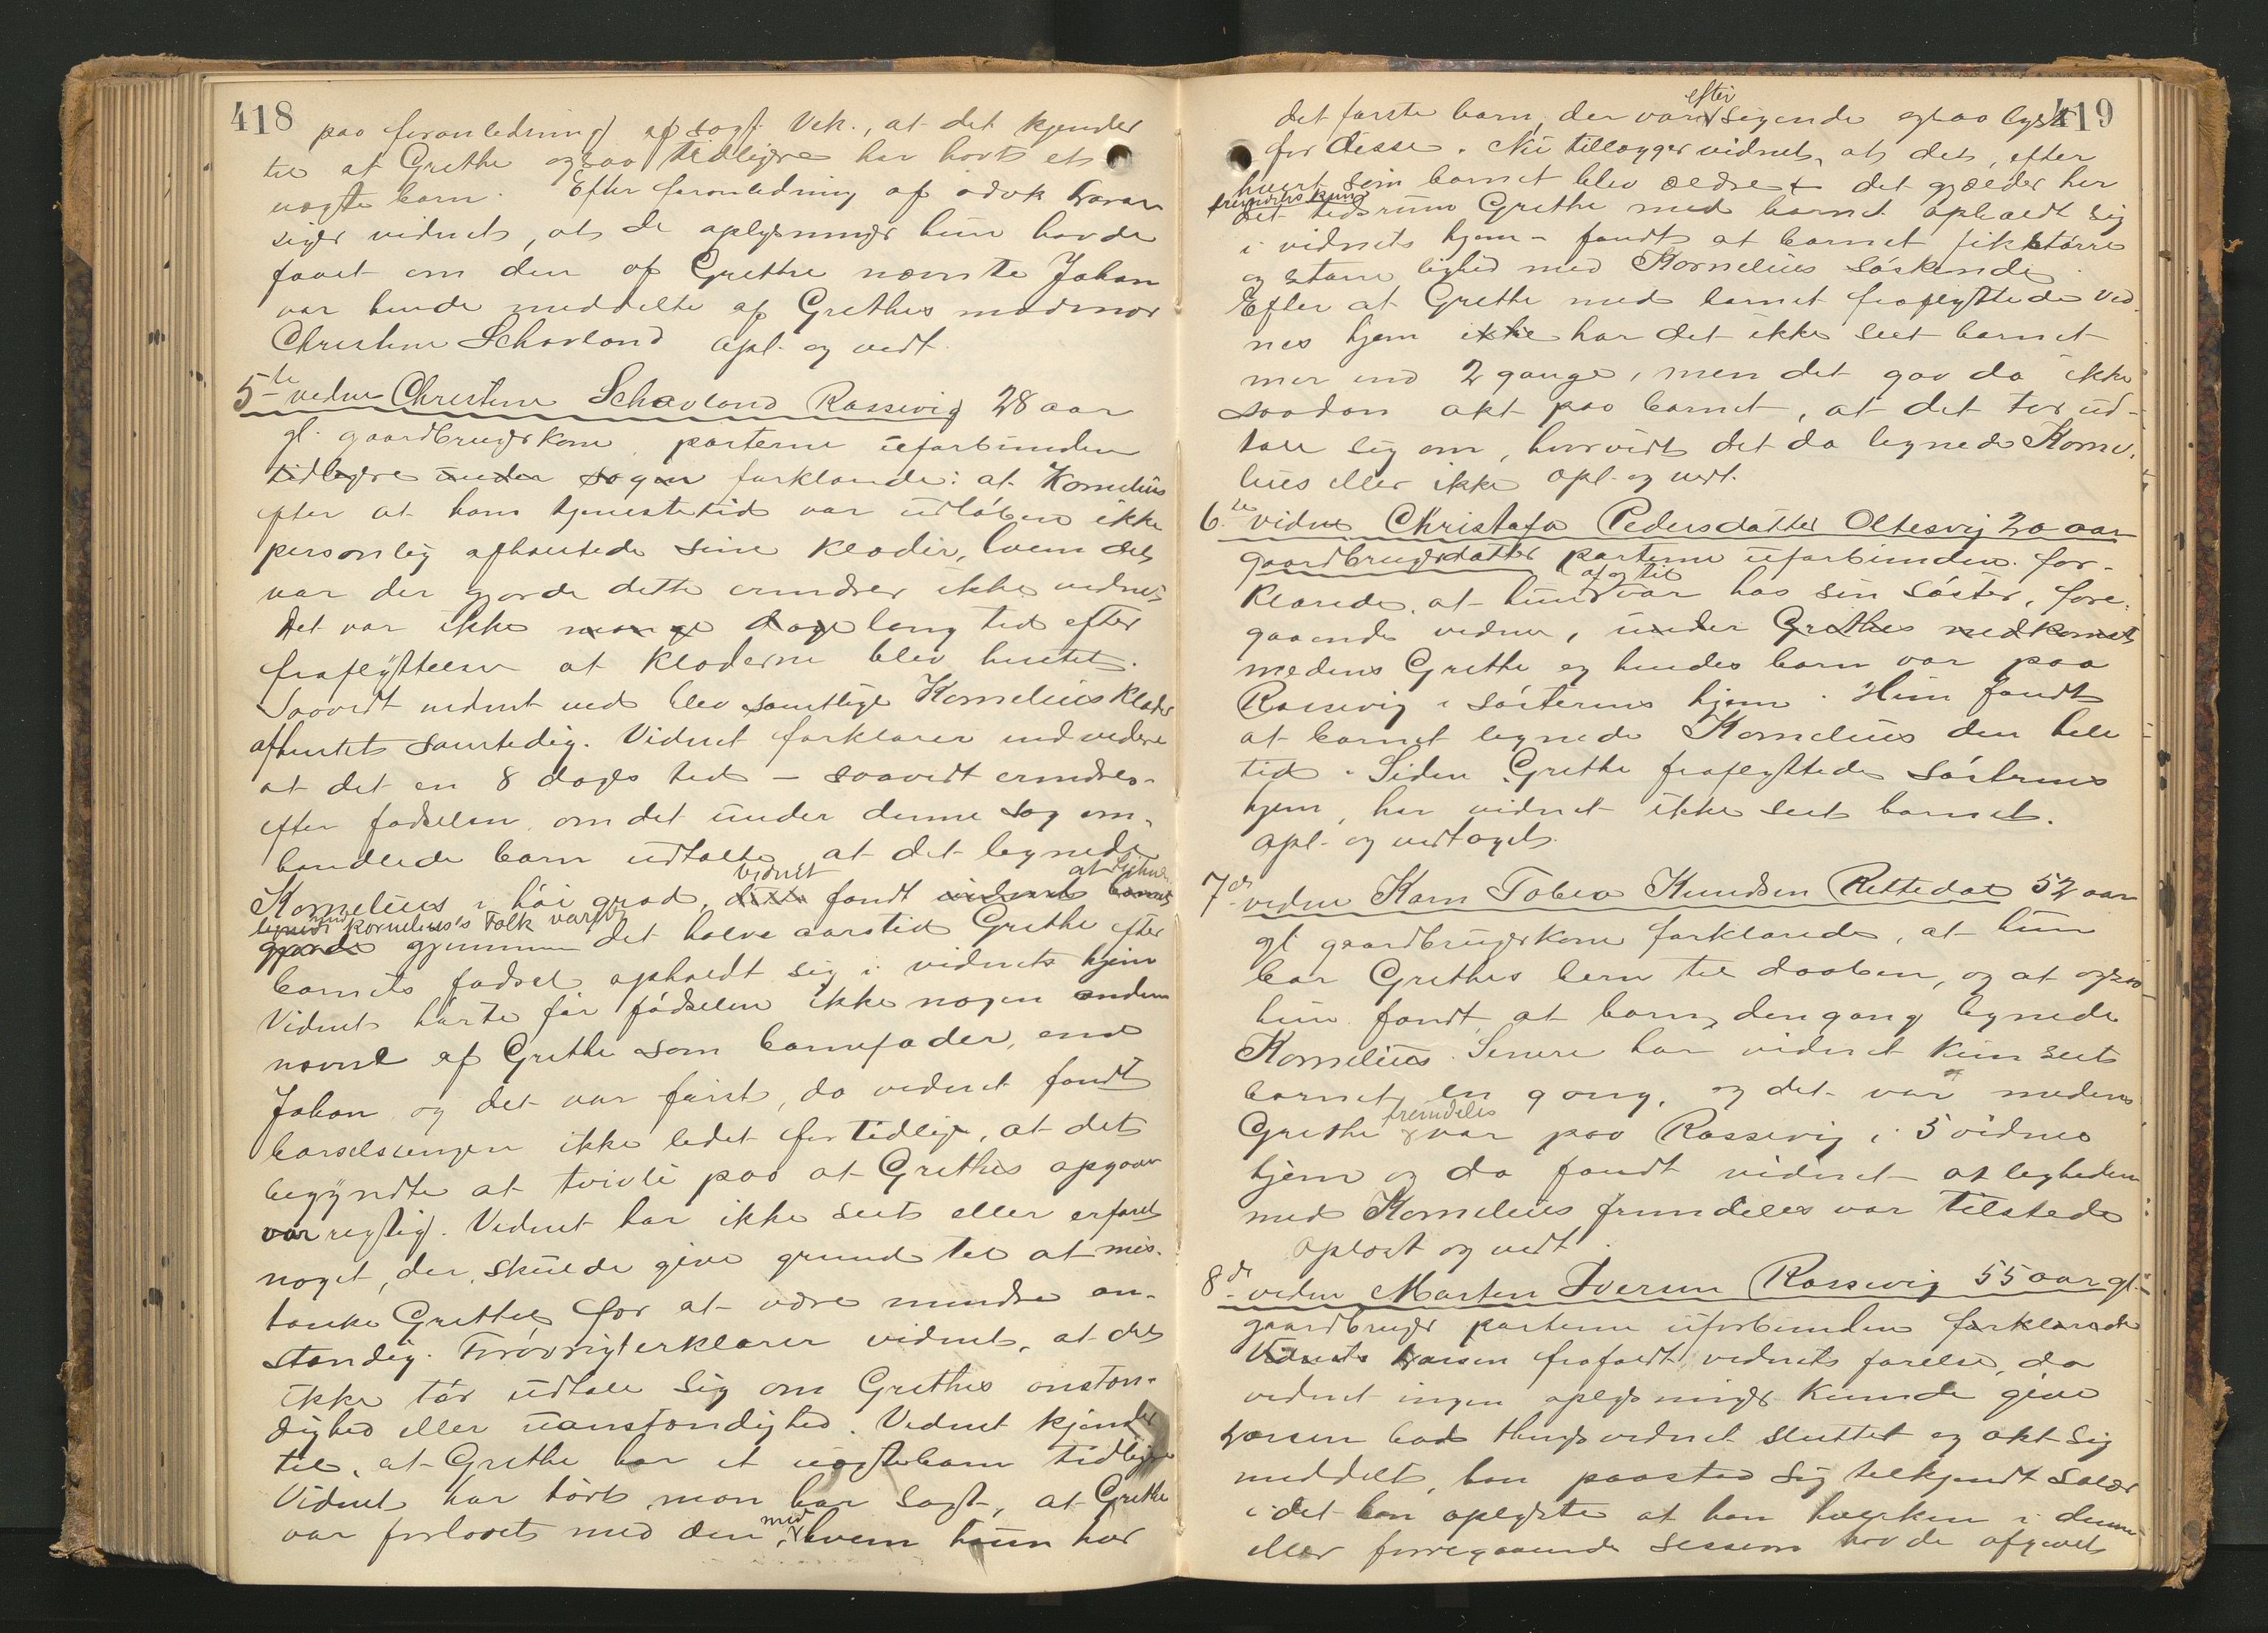 418
paa foranledning af sagf. Vek., at det kjender
til at Grethe ogsaa tidligere har havt et
uægte barn. Efter foranledning af advk
siger vidnet, at de oplysninger hun havde
faaet om den af Grethe nævnte Johan
var hende meddelte af Grethes madmor
Christine Schavland opl. og vedt.
5te vidne Christine Schavland Rassevig 28 aar
gl. gaardbrugerkone, parterne uforbunden
tidligere under sagen forklarede: at Kornelius
efter at hans tjenestetid var udløben ikke
personlig afhentede sine klæder, hvem det
var der gjorde dette erindrer ikke vidnet
Det var ikke mange dage lang tid efter
fraflyttelsen at klæderne blev hentet.
Saavidt vidnet ved blev samtlige Kornelius klæder
afhentet samtidig. Vidnet forklarer endvidere
at det en 8 dages tid – saavidt erindres
efter fødselen om det under denne sag om-
handlede barn udtalte, at det lignede
vidnet at
Kornelius i høi grad, fandt vidnet barnet
lignede Kornelius's Folk var
gjorde gjennem det halve aarstid Grethe efter
barnets fødsel opholdt sig i vidnets hjem
Vidnet hørte før fødselen ikke nogen anden
nævnt af Grethe som barnefader, end
Johan og det var først, da vidnet fandt
barselsengen ikke ledet for tidlig, at det
begyndte at tvivle paa at Grethes opgave
var rigtig. Vidnet har ikke seet eller erfaret
noget, der skulde give grund til at mis-
tænke Grethe for at være mindre an-
stændig. Forøvrigt erklærer vidnet, at det
ikke tør udtale sig om Grethes anstæn-
dighed eller uanstændighed. Vidnet kjender
til, at Grethe har et uægtebarn tidligere
Vidnet har hørt, man har sagt, at Grethe
var forlovet med den, med hvem hun har
419
efter
det første barn, der var sigende ogsaa lyst
for disse. Nu tillægger vidnet, at det, efter
hvert som barnet blev ældre + det gjælder her
fremdeles kun
det tidsrum Grethe med barnet opholdt sig
i vidnets hjem – fandt at barnet fik større
og større lighed med Kornelius søskende.
Efter at Grethe med barnet fraflyttede vid-
nes hjem ikke har det ikke seet barnet
mer end 2 gange, men det gav da ikke
saadan akt paa barnet, at det tør ud-
tale sig om, hvorvidt det da lignede Korne-
lius eller ikke opl. og vedt.
6te vidne Christofa Pedersdatter Oltesvig 20 aar
gaardbrugerdatter parterne uforbunden for-
af og til
klarede, at hun var hos sin søster, fore-
gaaende vidne, under Grethes nedkomst
medens Grethe og hendes barn var paa
Rassevig i søsterens hjem. Hun fandt
at barnet lignede Kornelius den hele
tid. Siden Grethe fraflyttede søsterens
hjem, har vidnet ikke seet barnet.
opl. og vedtaget.
7de vidne Karn Tobea Knudsen Rettedal 52 aar
gl. gaardbrugerkone forklarede, at hun
bar Grethes barn til daaben, og at ogsaa
hun fandt, at barn, dengang lignede
Kornelius. Senere har vidnet kun seet
barnet en gang, og det var medens
fremdeles
Grethe var paa Rassevig i 5 vidnes
hjem og da fandt vidnet at ligheden
med Kornelius fremdeles var tilstede
Oplæst og vedt.
8de vidne Marten Iversen Rassevig 55 aar gl.
gaardbruger parterne uforbunden forklarede
Vidnets frafaldt vidnets førelse, da
vidnet ingen oplysninger kunde give
bad thingsvidnet sluttet og akt sig
meddelt, han paastod sig tilkjendt salær
i det han oplyste at han hverken i denne
eller foregaaende session havde afgivet